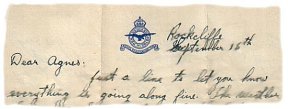 Rockcliffe
September 16th
Dear Agnes:
Just a line to let you know
everything is going along fine. The weather